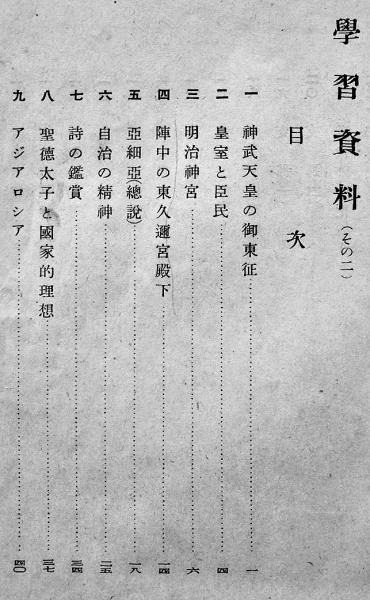 學習資料(その二)
目次
一 神武天皇の御東征……一
二 皇室と臣民……四
三 明治神宮……六
四 陣中の東久邇宮殿下……一四
五 亞細亞(總說)……一八
六 自治の精神……二五
七 詩の鑑賞……三四
八 聖德太子と國家的理想……三七
九 アジアロシア……四〇